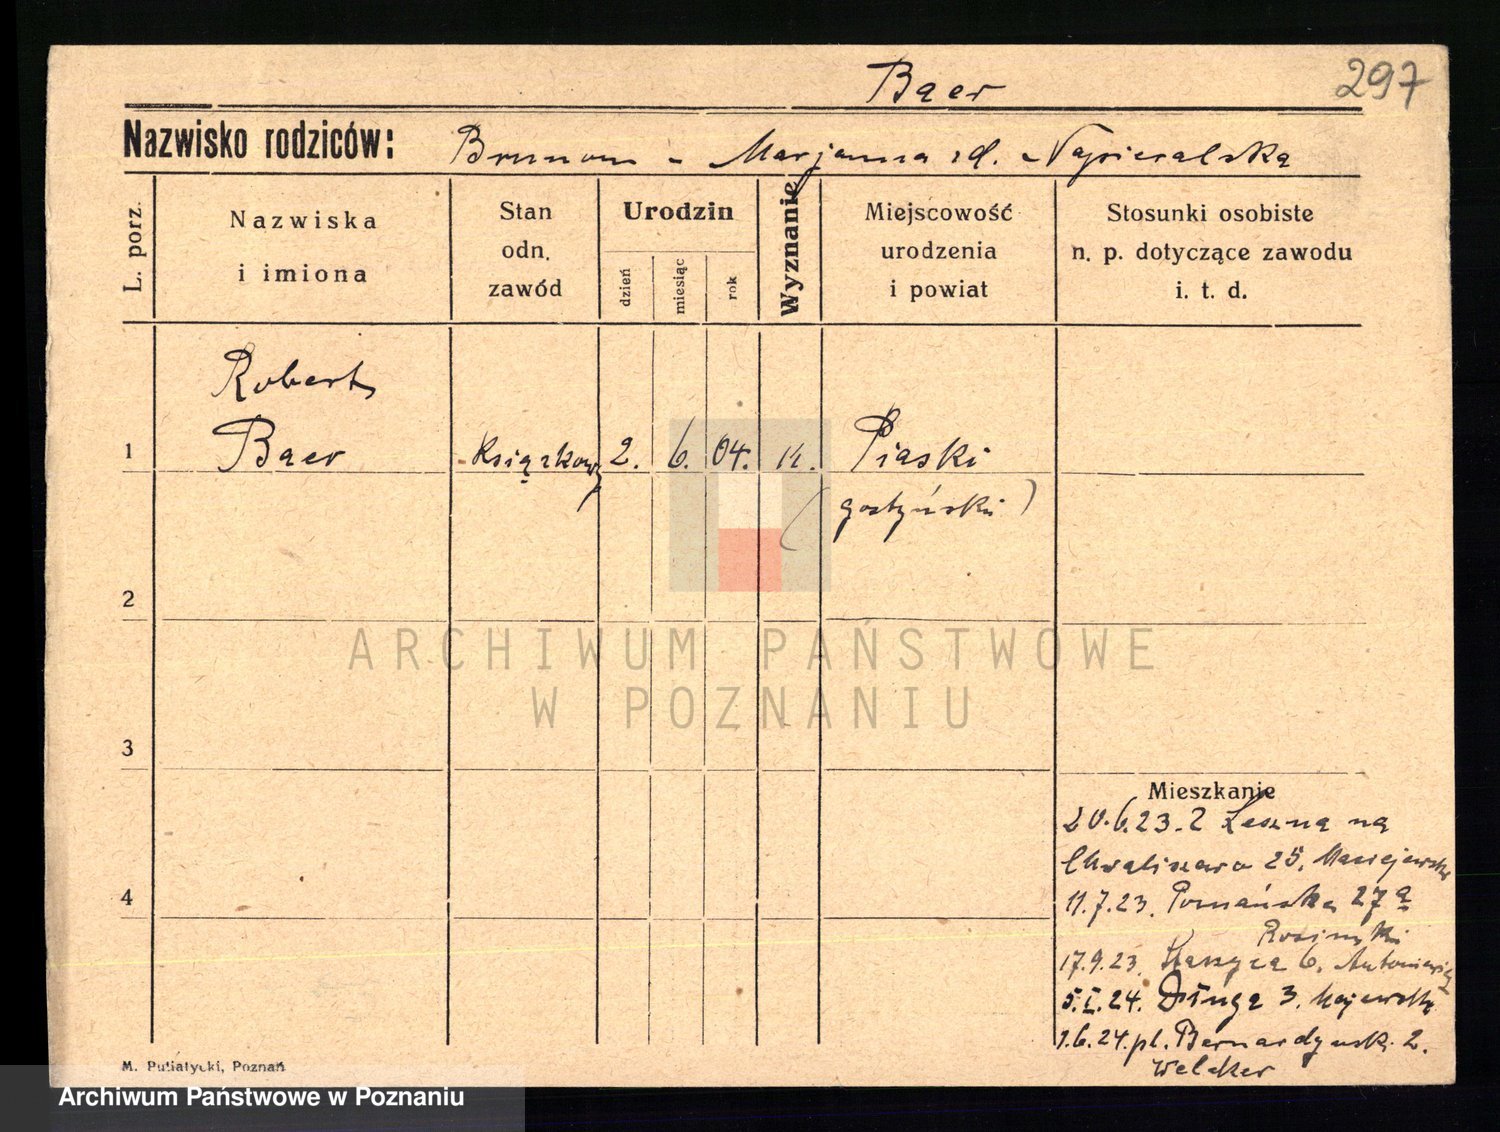 Baer
297
Nazwisko rodziców: Brunon - Marjanna zd. Napieralska
L. porz.
Nazwiska
i imiona
Stan
odn.
zawód
Urodzin
dzień
miesiąc
rok
Wyznanie
Miejscowość
urodzenia
i powiat
Stosunki osobiste
n. p. dotyczące zawodu
i. t. d.
Robert
1 Baer Książkowy 2. 6. 04. k. Piaski
(gostyński)
2
3
4
Mieszkanie
20.6.23. z Leszna na
Chwaliszewo 25. Maciejewska
11.7.23. Poznańska 27a
17.9.23. 6. Antoniewicz
5.I.24. Długa 3. Majewska
1.6.24. pl. Bernardyńsk. 2.
Welcker
M. Putiatycki, Poznań
ARCHIWUM PAŃSTWOWE
W POZNANIU
Archiwum Państwowe w Poznaniu